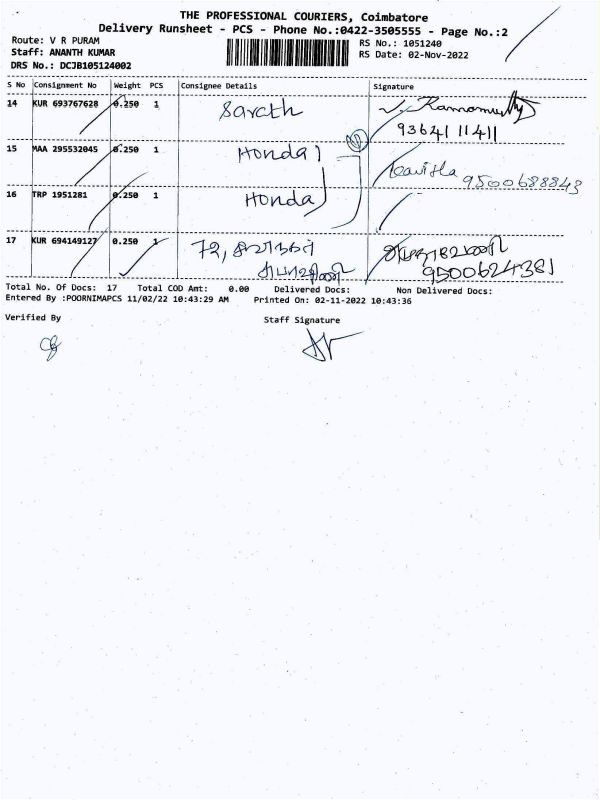 THE PROFESSIONAL COURIERS, Coimbatore
Delivery Runsheet - PCS - Phone No.:0422-3505555 - Page No.:2
Route: V R PURAM
Staff: ANANTH KUMAR
DRS No.: DCJB105124002
RS No.: 1051240
RS Date: 02-Nov-2022
S No Consignment No Weight PCS Consignee Details Signature
14 KUR 693767628 0.250 1 Sarath V. Ramamurthy
9364111411
15 MAA 295532045 0.250 1 Honda Kavitha 9500688843
16 TRP 1951281 0.250 1 Honda
17 KUR 694149127 0.250 1 72,
9500624381
Total No. Of Docs: 17 Total COD Amt: 0.00 Delivered Docs: Non Delivered Docs:
Entered By :POORNIMAPCS 11/02/22 10:43:29 AM Printed On: 02-11-2022 10:43:36
Verified By Staff Signature